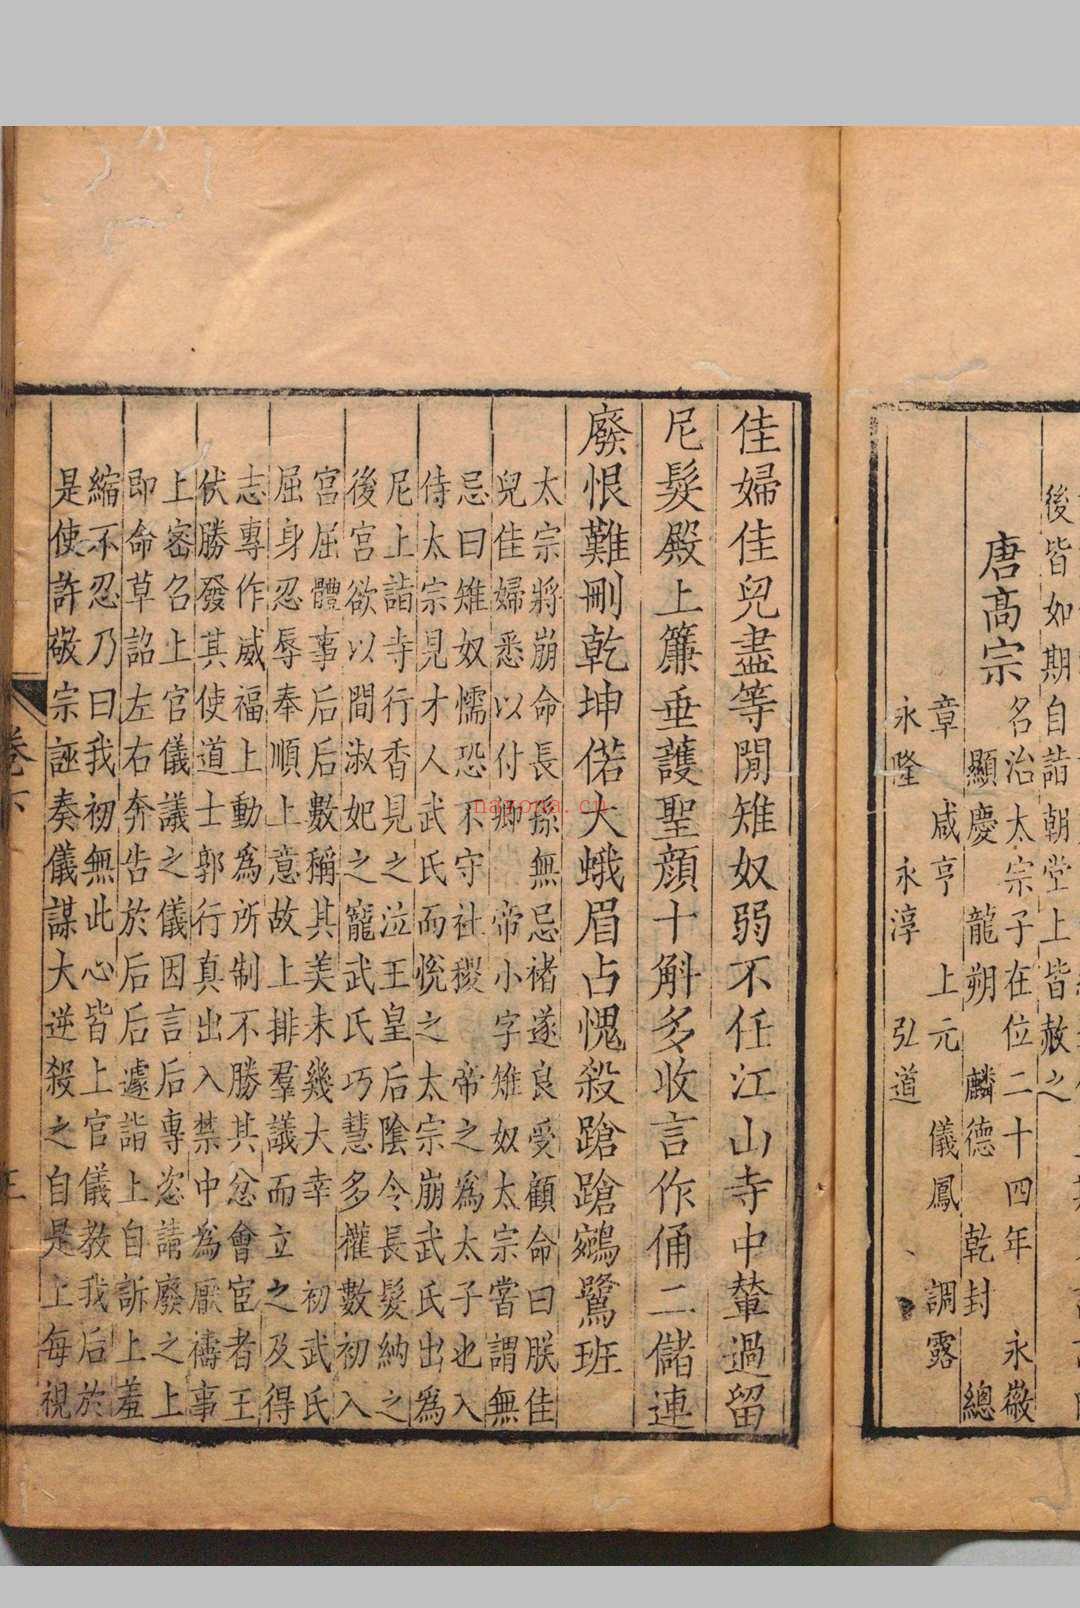 後皆如期自詣朝堂上皆赦之
唐高宗
名治太宗子在位二十四年 永徽
顯慶 龍朔 麟德 乾封 總
章 咸亨 上元 儀鳳 調露
永隆 永淳 弘道
佳婦佳兒盡等閒雉奴弱不任江山寺中輦過留
尼髮殿上簾垂護聖顏十斛多收言作俑二儲連
廢恨難刪乾坤偌大蛾眉占愧殺蹌蹌鵷鷺班
太宗將崩命長孫無忌褚遂良受顧命曰朕佳
兒佳婦悉以付卿 帝小字雉奴太宗嘗謂無
忌曰雉奴懦恐不守社稷 帝之為太子也入
侍太宗見才人武氏而悅之太宗崩武氏出為
尼上詣寺行香見之泣王皇后陰令長髮納之
後宮欲以間淑妃之寵武氏巧慧多權數初入
宮屈體事后后數稱其美未幾大幸 初武氏
屈身忍辱奉順上意故上排羣議而立之及得
志專作威福上動為所制不勝其忿會宦者王
伏勝發其使道士郭行真出入禁中為厭禱事
上密召上官儀議之儀因言后專恣請廢之上
即命草詔左右奔告於后后遽詣上自訴上羞
縮不忍乃曰我初無此心皆上官儀教我后於
是使許敬宗誣奏儀謀大逆殺之自是上每視
nayona.cn